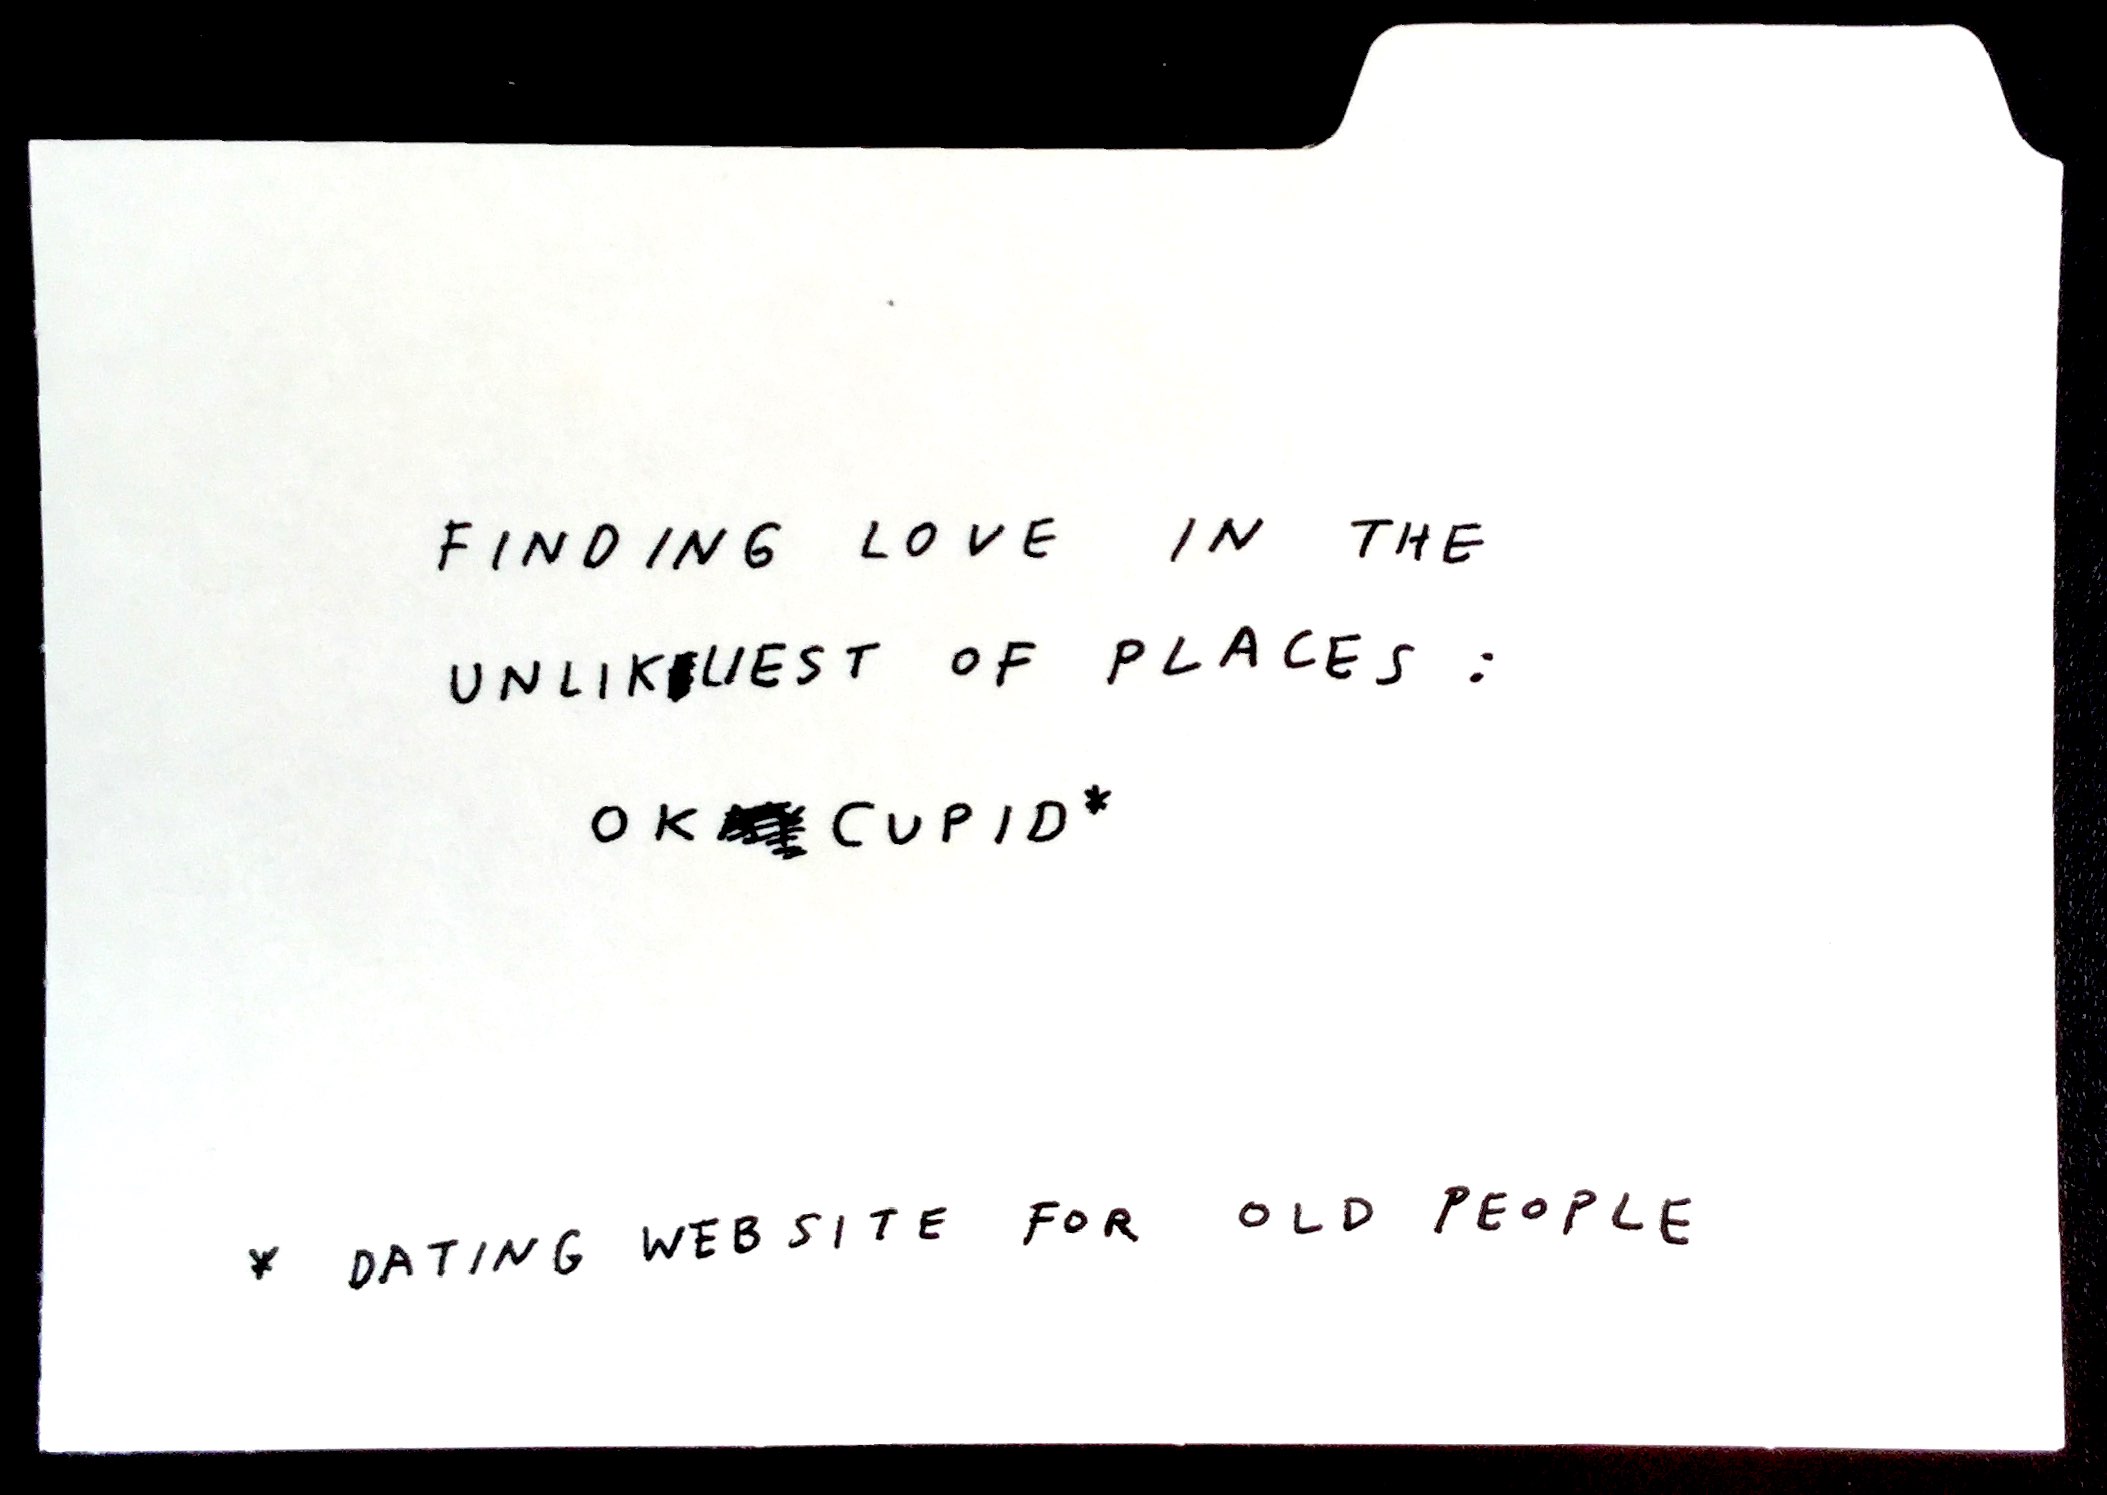 FINDING LOVE IN THE
UNLIKLIEST OF PLACES:
OK CUPID*
* DATING WEBSITE FOR OLD PEOPLE